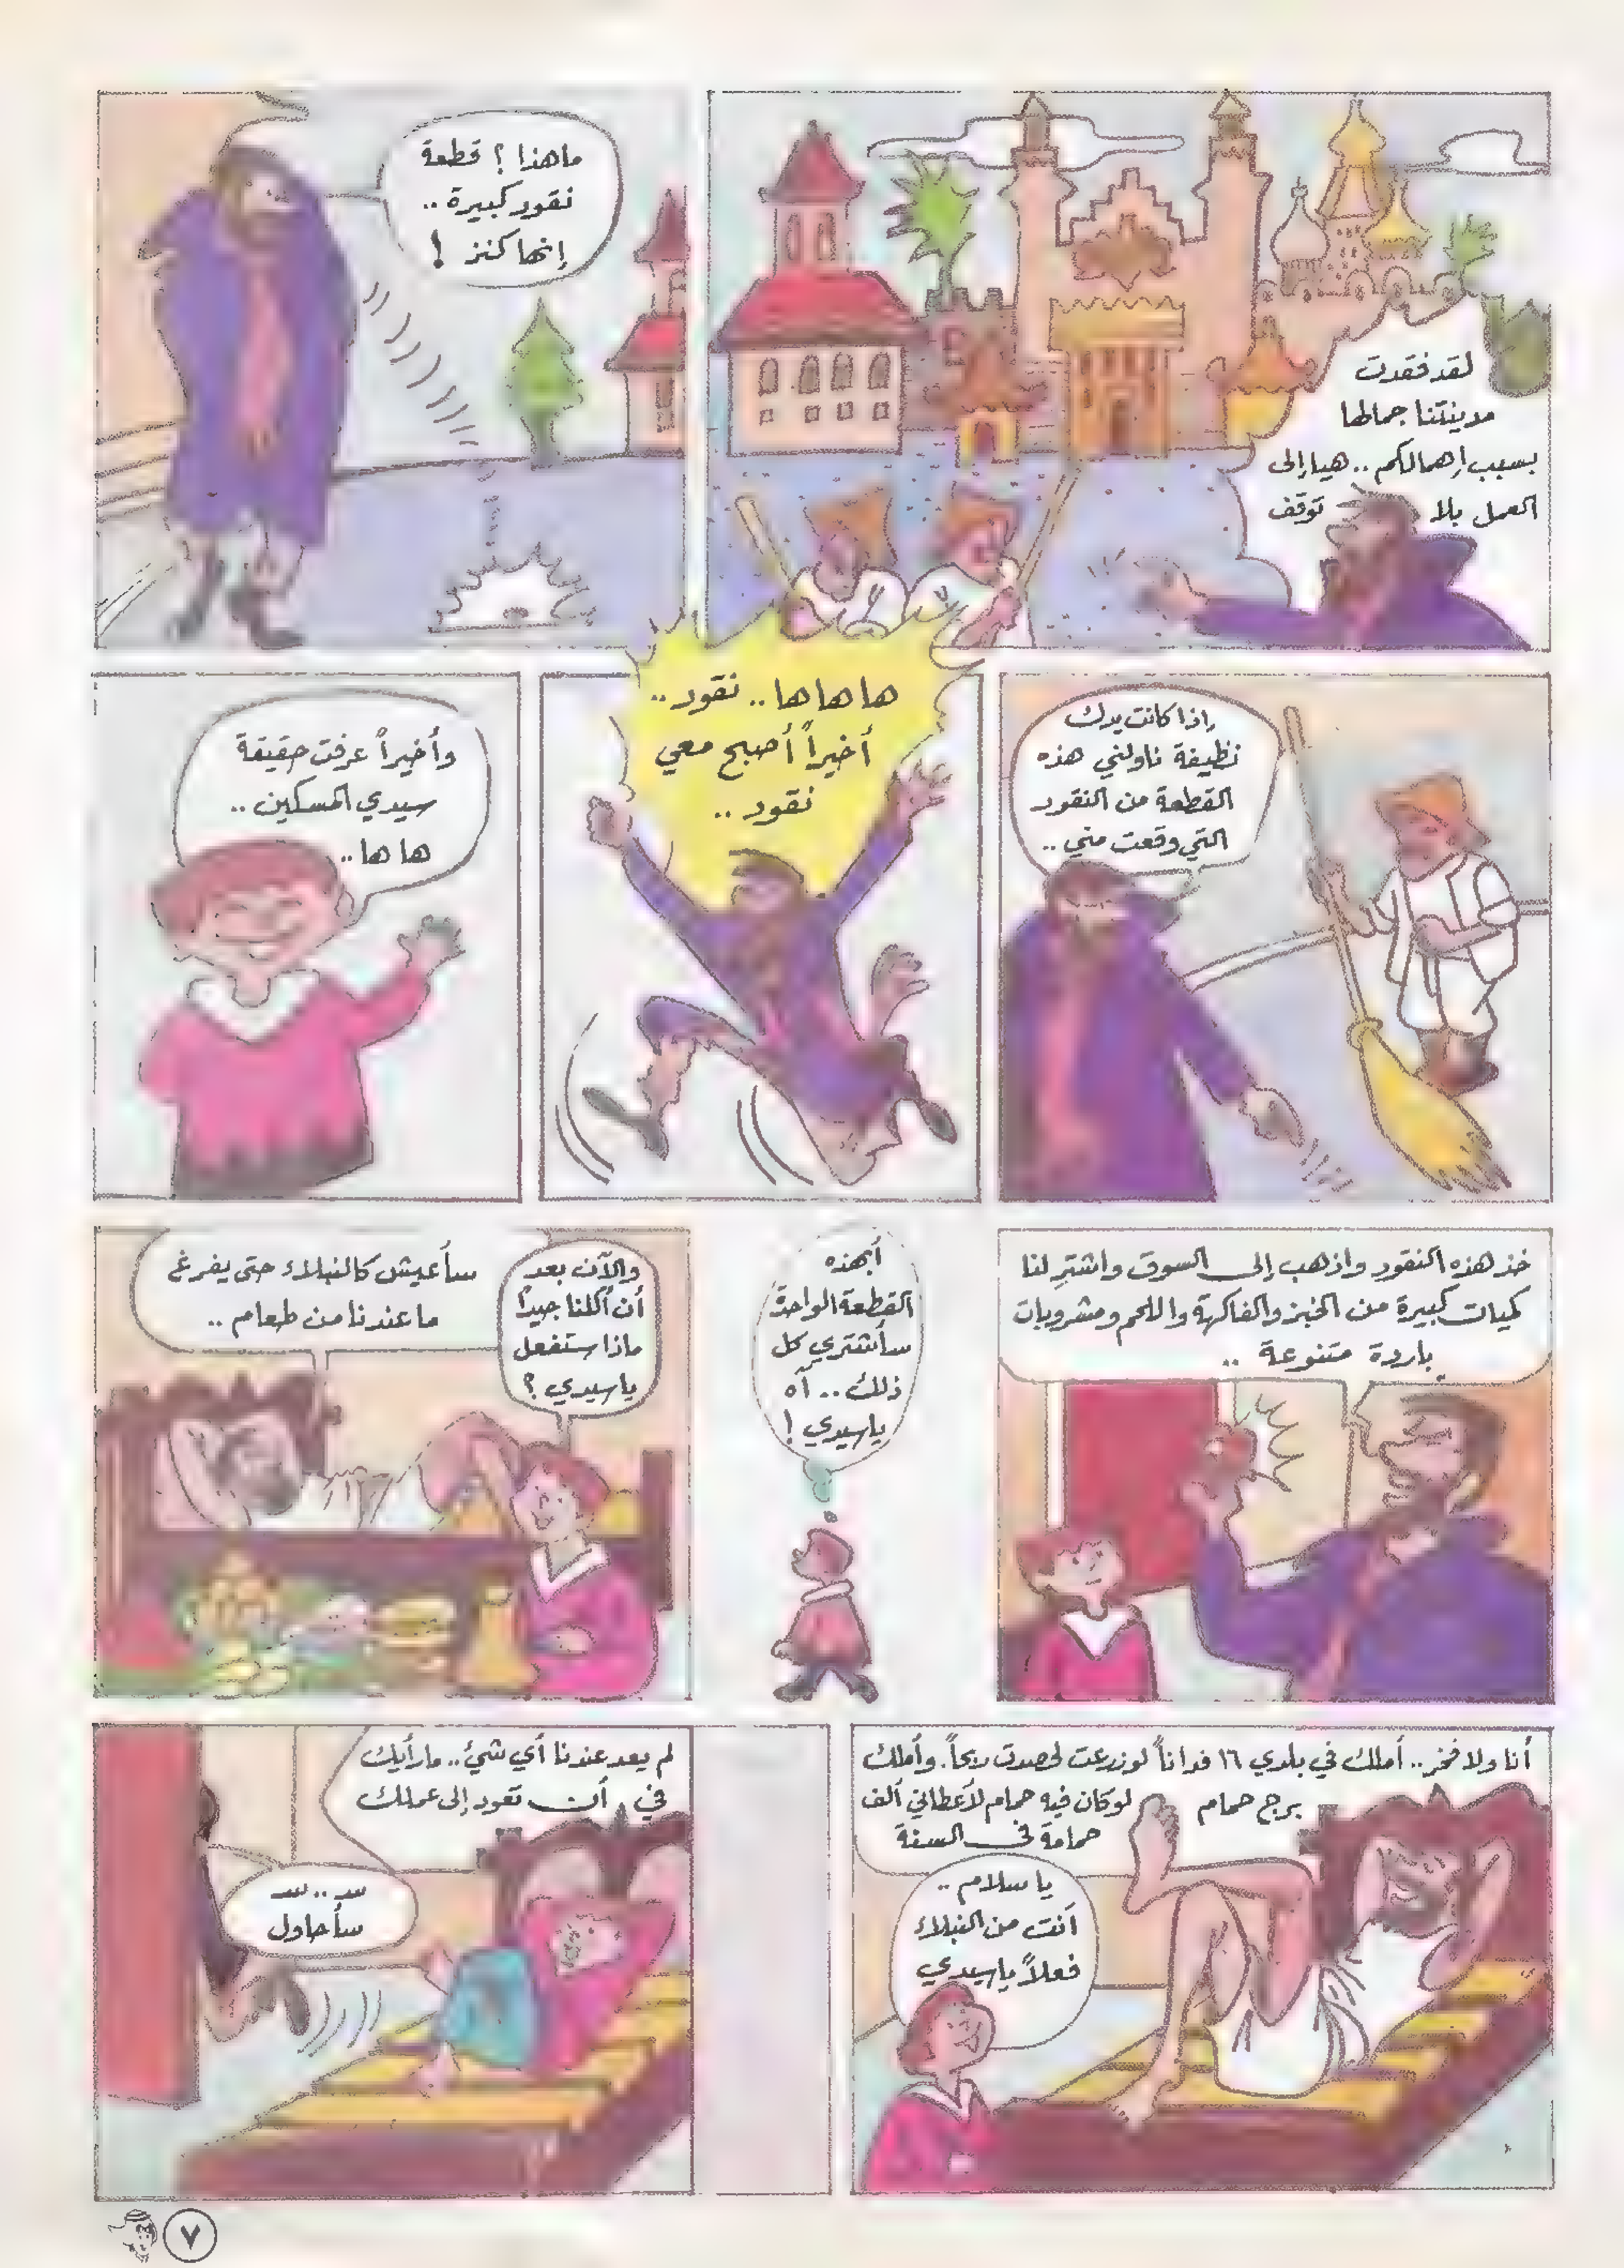 لقد فقدت
مدينتنا جمالها
بسبب إهمالكم .. هيا إلى
العمل بلا توقف
ما هذا ؟ قطعة
نقود كبيرة ..
إنها كنز !
إذا كانت يدك
نظيفة ناولني هذه
القطعة من النقود
التي وقعت مني ..
ها ها ها .. نقود ..
أخيراً أصبح معي
نقود ..
وأخيراً عرفت حقيقة
سيدي المسكين ..
ها ها ..
خذ هذه النقود واذهب إلى السوق واشترِ لنا
كميات كبيرة من الخبز والفاكهة واللحم ومشروبات
باردة متنوعة ..
أبهذه
القطعة الواحدة
سأشتري كل
ذلك .. آه
يا سيدي !
والآن بعد
أن أكلنا جيداً
ماذا ستفعل
يا سيدي ؟
سأعيش كالنبلاء حتى يفرغ
ما عندنا من طعام ..
أنا ولا فخر .. أملك في بلدي ١٦ فداناً لو زرعت لحصدت ربحاً. وأملك
برج حمام لو كان فيه حمام لأعطاني ألف
حمامة في السنة
يا سلام ..
أنت من النبلاء
فعلاً يا سيدي
لم يعد عندنا أي شيء .. ما رأيك
في أن تعود إلى عملك
سـ .. سـ
سأحاول
٧